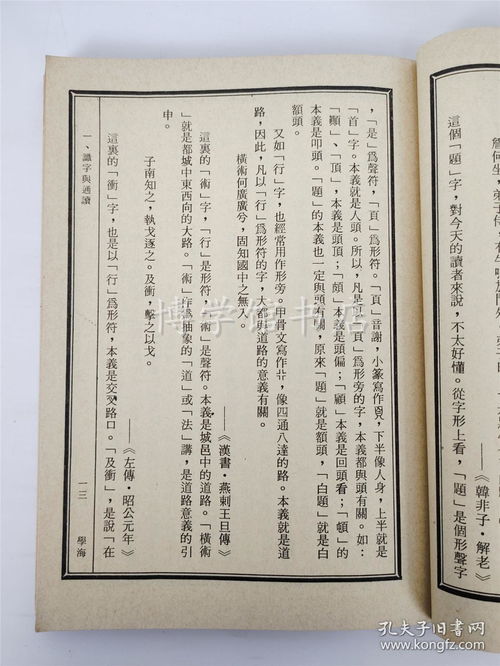 詹何坐,弟子侍,有牛鳴於門外
——《韓非子·解老》
這個「題」字,對今天的讀者來說,不太好懂。從字形上看,「題」是個形聲字
,「是」爲聲符,「頁」爲形符。「頁」音謝,小篆寫作,下半像人身,上半就是
「首」字。本義就是人頭。所以,凡是以「頁」爲形旁的字,本義都與頭有關。如:
「顚」、「頂」,本義是頭頂;「頗」本義是頭偏;「顧」本義是回頭看;「頓」的
本義是叩頭。「題」的本義也一定與頭有關,原來「題」就是額頭,「白題」就是白
額頭。
又如「行」字,也經常用作形旁。甲骨文寫作,像四通八達的路。本義就是道
路,因此,凡以「行」爲形符的字,大都與道路的意義有關。
橫術何廣廣兮,固知國中之無人。
——《漢書·燕剌王旦傳》
這裏的「術」字,「行」是形符,「朮」是聲符。本義是城邑中的道路。「橫術
」就是都城中東西向的大路。「術」作爲抽象的「道」或「法」講,是道路意義的引
申。
子南知之,執戈逐之。及衝,擊之以戈。
——《左傳·昭公元年》
這裏的「衝」字,也是以「行」爲形符,本義是交叉路口。「及衝」,是說「在
一、識字與通讀
一三
學海
博学居书店
孔夫子旧书网
www.kongfz.com